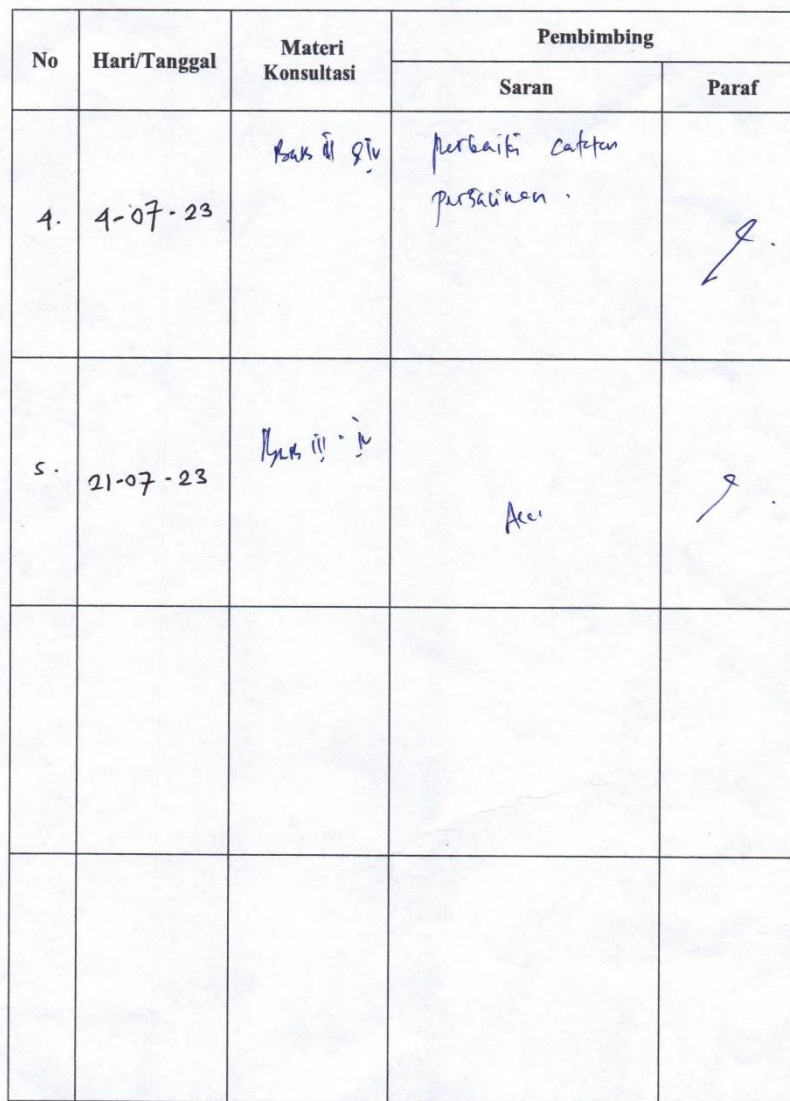 No Hari/Tanggal Materi Konsultasi Pembimbing
Saran Paraf
4. 4-07-23 Bab III & IV perbaiki catatan
persalinan.
5. 21-07-23 Bab III - IV Acc